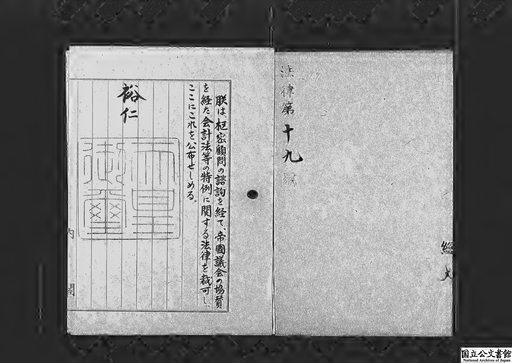 法律第十九号
朕は、枢密顧問の諮詢を経て、帝國議会の協賛
を経た会計法等の特例に関する法律を裁可し、
ここにこれを公布せしめる。
裕仁
天皇
御璽
内閣
国立公文書館
National Archives of Japan